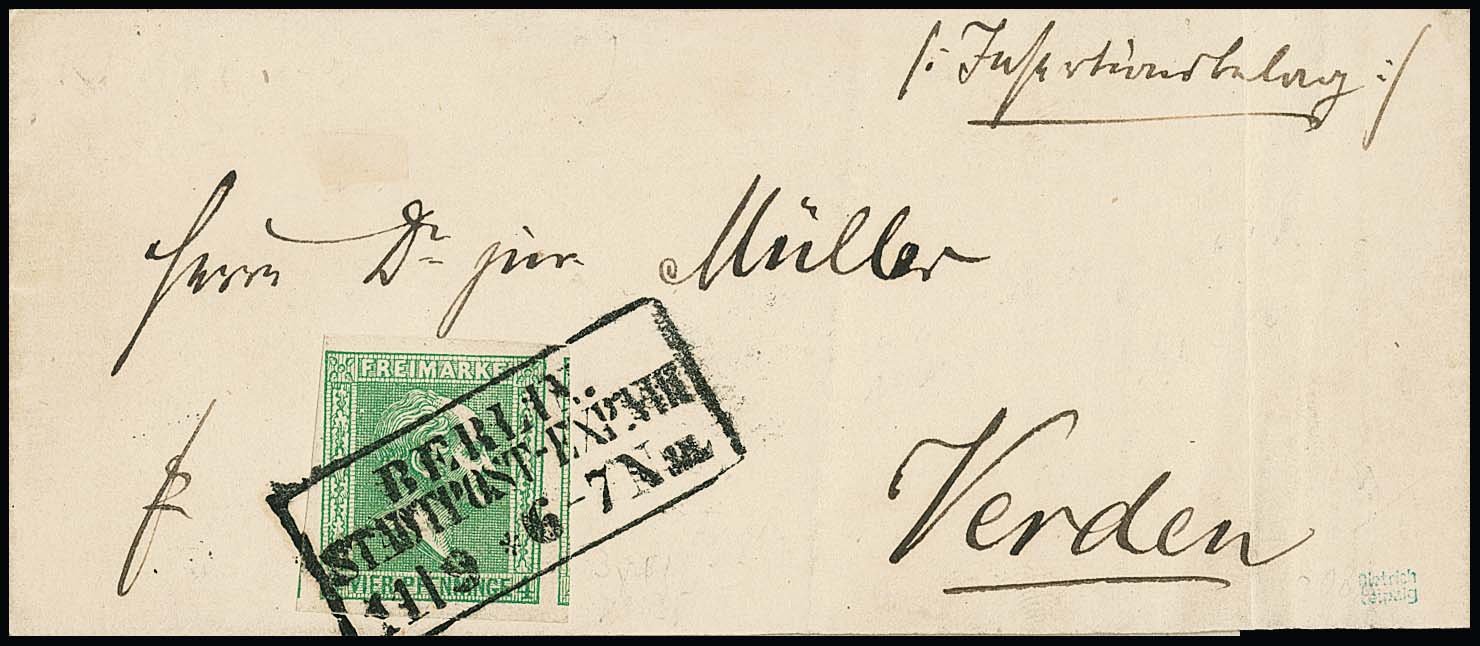 /: Insertionsbelag :/
Herrn Dr. jur. Müller
FREIMARKE
BERLIN.
STADTPOST-EXP. VIII
11/9 * 6-7 Nm
VIER PFENNINGE
fr
Verden
Dietrich
Leipzig